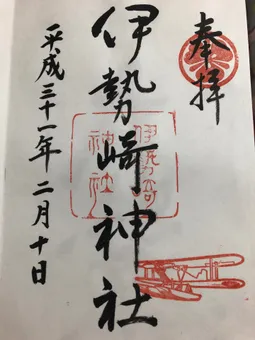 奉拝
伊勢崎神社
伊勢崎
神社
平成三十一年二月十日